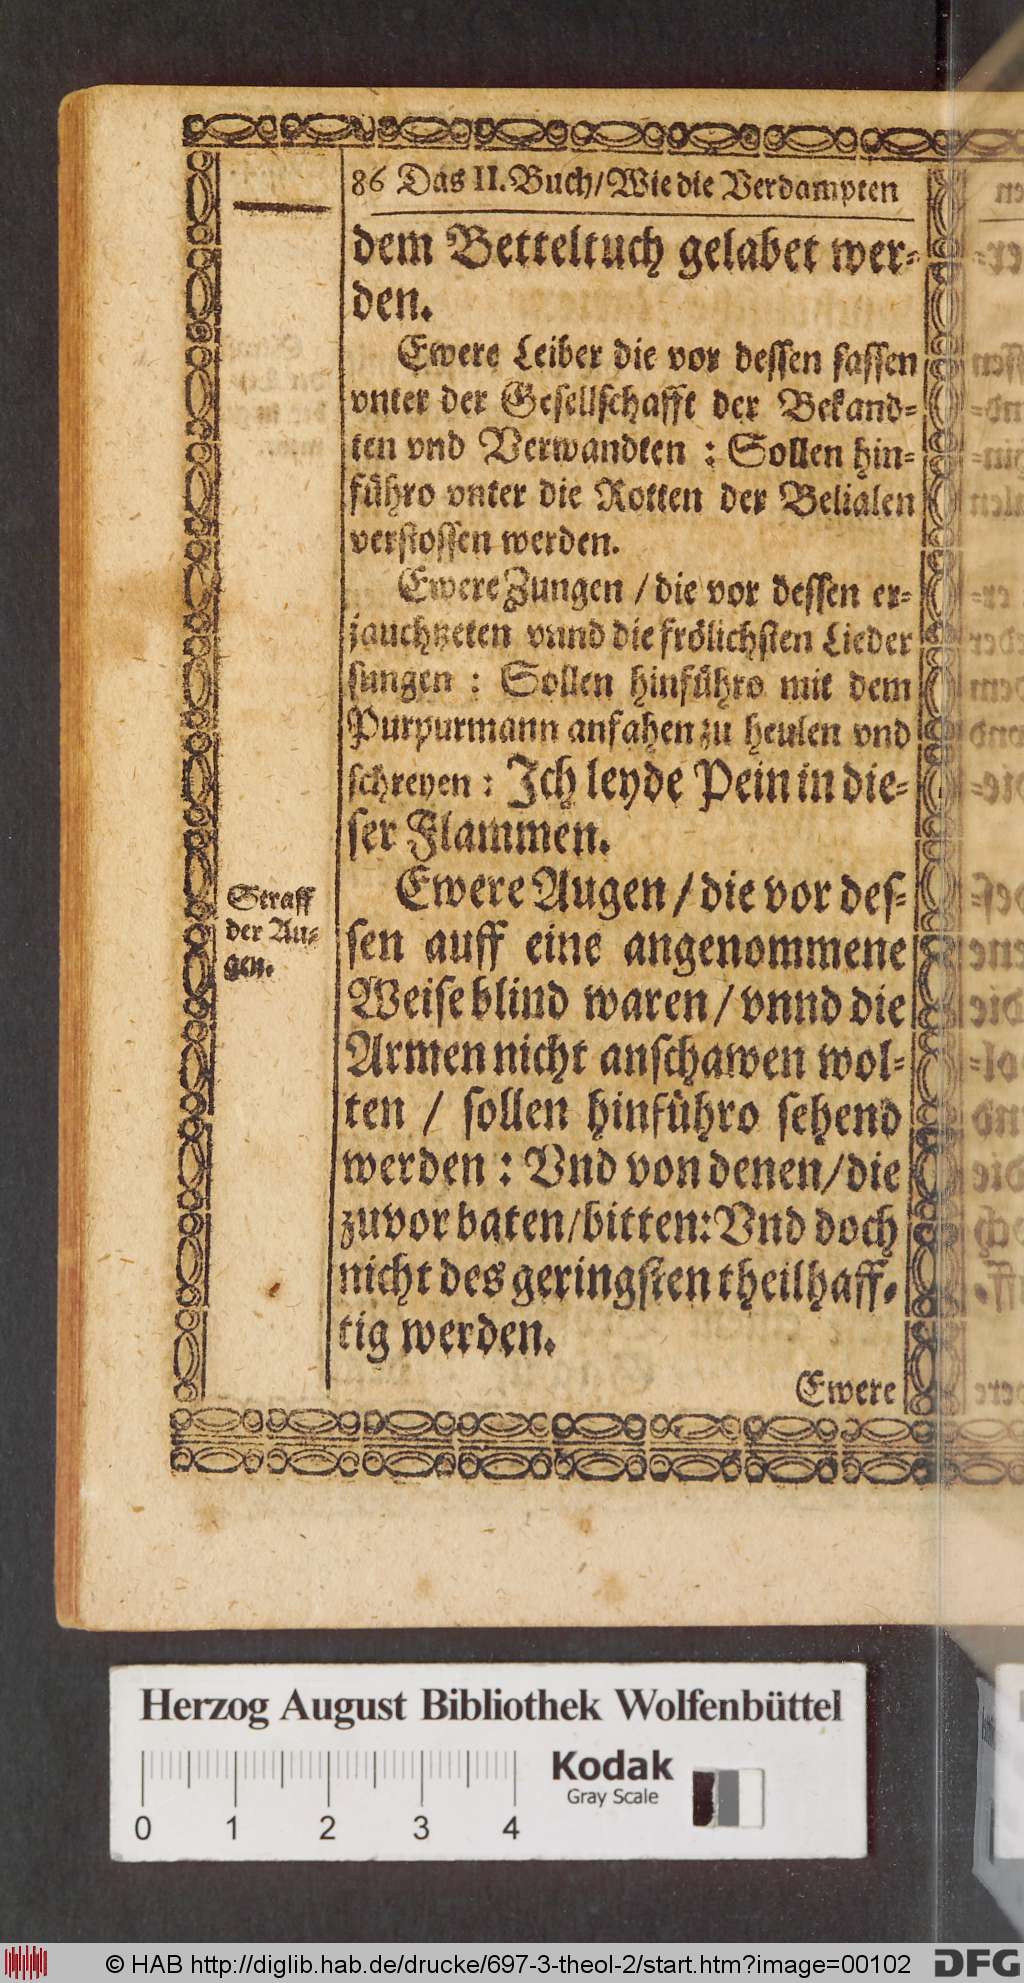 86 Das II. Buch/ Wie die Verdampten
dem Betteltuch gelabet wer-
den.
Ewere Leiber die vor dessen sassen
vnter der Gesellschafft der Bekand-
ten vnd Verwandten : Sollen hin-
führo vnter die Rotten der Belialen
verstossen werden.
Ewere Zungen / die vor dessen er-
jauchtzeten vnnd die frölichsten Lieder
sungen : Sollen hinführo mit dem
Purpurmann anfahen zu heulen vnd
schreyen : Ich leyde Pein in die-
ser Flammen.
Straff
der Au-
gen.
Ewere Augen / die vor des-
sen auff eine angenommene
Weise blind waren / vnnd die
Armen nicht anschawen wol-
ten / sollen hinführo sehend
werden : Vnd von denen/ die
zuvor baten/ bitten: Vnd doch
nicht des geringsten theilhaff-
tig werden.
Ewere
Herzog August Bibliothek Wolfenbüttel
Kodak
Gray Scale
0 1 2 3 4
© HAB http://diglib.hab.de/drucke/697-3-theol-2/start.htm?image=00102
DFG